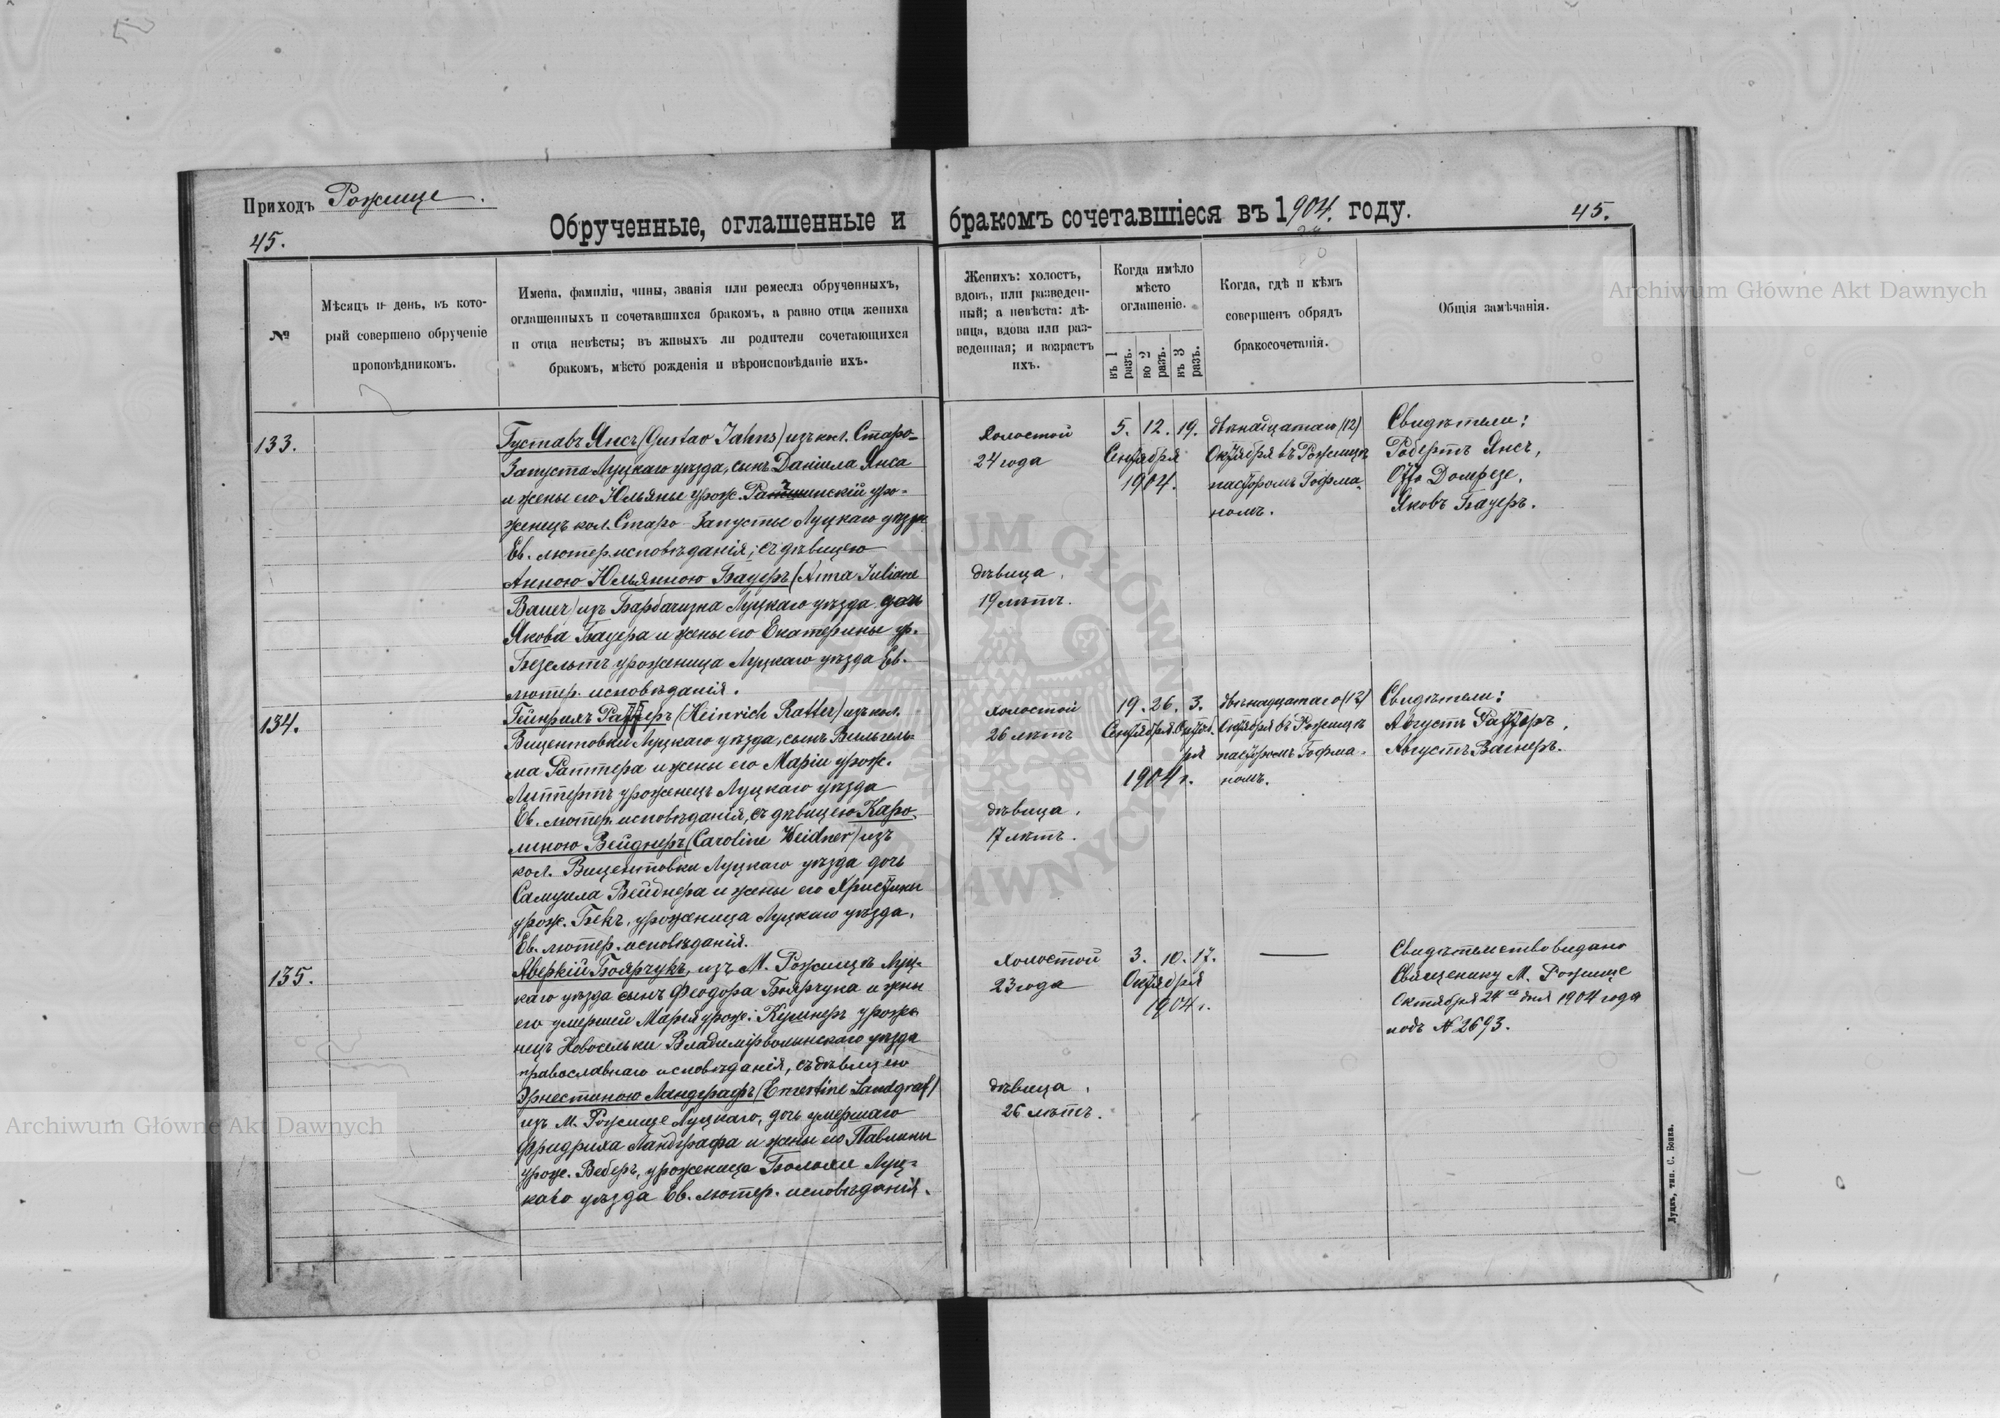 Приходъ Рожище.
45.
Обрученные, оглашенные и бракомъ сочетавшіеся въ 1904. году.
45.
№
Мѣсяцъ и день, въ кото-
рый совершено обрученіе
проповѣдникомъ.
Имена, фамиліи, чины, званія или ремесла обрученныхъ,
оглашенныхъ и сочетавшихся бракомъ, а равно отца жениха
и отца невѣсты; въ живыхъ ли родители сочетающихся
бракомъ, мѣсто рожденія и вѣроисповѣданіе ихъ.
Женихъ: холостъ,
вдовъ, или разведен-
ный; а невѣста: дѣ-
вица, вдова или раз-
веденная; и возрастъ
ихъ.
Когда имѣло
мѣсто
оглашеніе.
въ 1 разъ.
во 2 разъ.
въ 3 разъ.
Когда, гдѣ и кѣмъ
совершенъ обрядъ
бракосочетанія.
Общія замѣчанія.
133.
Густавъ Янсъ (Gustav Jahns) изъ кол. Старо-
Запуста Луцкаго уѣзда, сынъ Даніила Янса
и жены его Юльяны урож. уро-
женецъ кол. Старо-Запусты Луцкаго уѣзда
Ев. лютер. исповѣданія; съ дѣвицею
Анною Юльянною Бауеръ (Anna Juliane
Bauer) изъ Барбачизна Луцкаго уѣзда дочь
Якова Бауера и жены его Екатерины ур.
Безельтъ уроженица Луцкаго уѣзда Ев.
лютер. исповѣданія.
Холостой
24 года
дѣвица,
19 лѣтъ.
5. 12. 19.
Сентября
1904.
двѣнадцатаго (12)
Октября въ Рожищѣ
пасторомъ Гофма-
номъ.
Свидѣтели:
Робертъ Янсъ,
Отто Домрезе,
Яковъ Бауеръ.
134.
Гейнрихъ Раттеръ (Heinrich Ratter) изъ кол.
Вицентовки Луцкаго уѣзда, сынъ Вильгель-
ма Раттера и жены его Маріи урож.
Липпертъ уроженецъ Луцкаго уѣзда
Ев. лютер. исповѣданія, съ дѣвицею Каро-
линою Вейднеръ (Caroline Weidner) изъ
кол. Вицентовки Луцкаго уѣзда дочь
Самуила Вейднера и жены его Христины
урож. Бекъ, уроженица Луцкаго уѣзда,
Ев. лютер. исповѣданія.
холостой
26 лѣтъ
дѣвица,
17 лѣтъ.
19. 26. 3.
Сентября. Октяб-
ря
1904 г.
двѣнадцатаго (12)
Октября въ Рожищѣ
пасторомъ Гофма-
номъ.
Свидѣтели:
Августъ Раттеръ,
Августъ Вагнеръ.
135.
Аверкій Боярчукъ, изъ М. Рожищѣ Луц-
каго уѣзда сынъ Феодора Боярчука и жены
его умершей Марьи урож: Кушнеръ уроже-
нецъ Новоселки Владимірволынскаго уѣзда
православнаго исповѣданія, съ дѣвицею
Эрнестиною Ландграфъ (Ernestine Landgraf)
изъ М. Рожище Луцкаго, дочь умершаго
Фридриха Ландграфа и жены его Павлины
урож. Веберъ, уроженица Луц-
каго уѣзда Ев. лютер. исповѣданія.
холостой
23 года
дѣвица,
26 лѣтъ.
3. 10. 17.
Октября
1904 г.
Свидѣтельство видано
Священику М. Рожище
Октября 24го дня 1904 года
подъ № 2693.
Луцкъ, тип. С. Бонка.
Archiwum Główne Akt Dawnych
Archiwum Główne Akt Dawnych